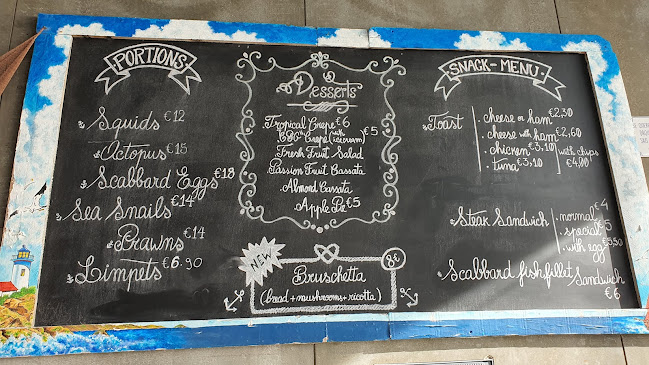 PORTIONS
Squids €12
Octopus €15
Scabbard Eggs €18
Sea Snails €14
Prawns €14
Limpets €6.90
Desserts
Tropical Crepe €6
Crepe (with icecream) €5
Fresh Fruit Salad
Passion Fruit Cassata
Almond Cassata
Apple Pie €5
NEW
Bruschetta 8€
(bread + mushrooms + ricotta)
SNACK-MENU
Toast
cheese or ham €2,30
cheese with ham €2,60
chicken €3,10
tuna €3,10
with chips €4,00
Steak Sandwich
normal €4
special €5
with egg €5,50
Scabbard fish fillet Sandwich €6